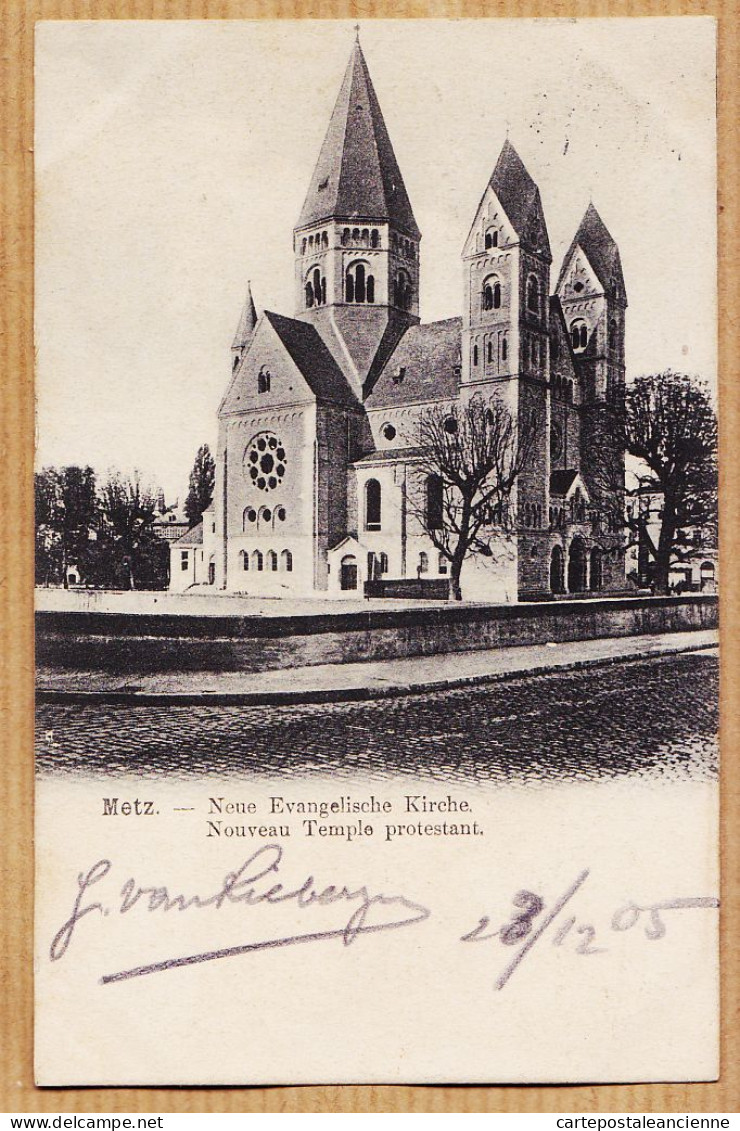 Metz. — Neue Evangelische Kirche.
Nouveau Temple protestant.
J. van
28/12 05
Delcampe.net
cartepostaleancienne